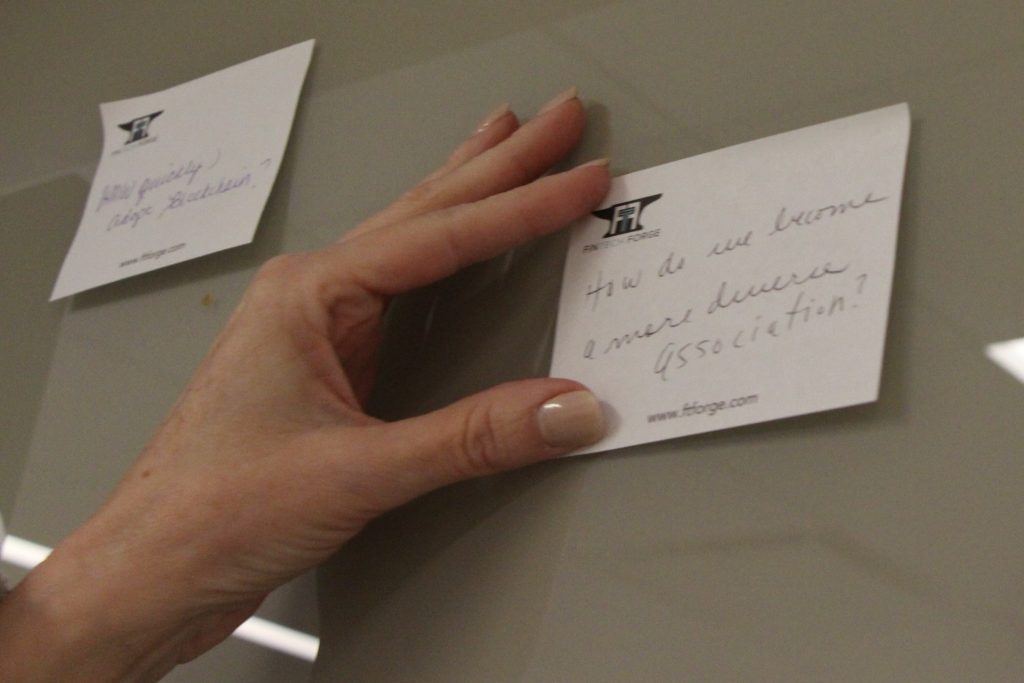 FINTECH FORGE
How quickly
adopt Blockchain?
www.ftforge.com
FINTECH FORGE
How do we become
a more diverse
association?
www.ftforge.com